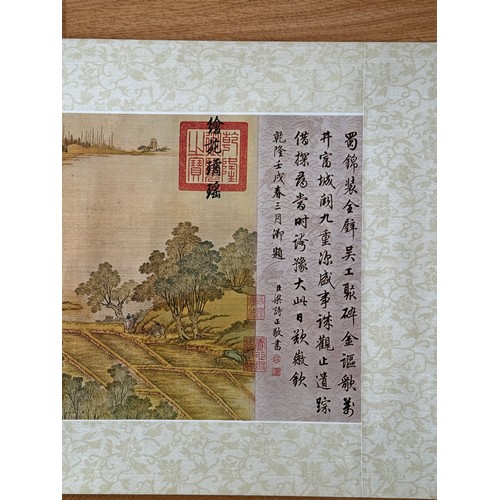 蜀錦裝金璧吳工聚碎金謳歌萬
井富城闕九重深盛事誠觀止遺踪
借探尋當時誇豫大此日歎徽欽
乾隆壬戌春三月御題
臣梁詩正敬書
繪苑璚瑶
乾隆御覽之寶